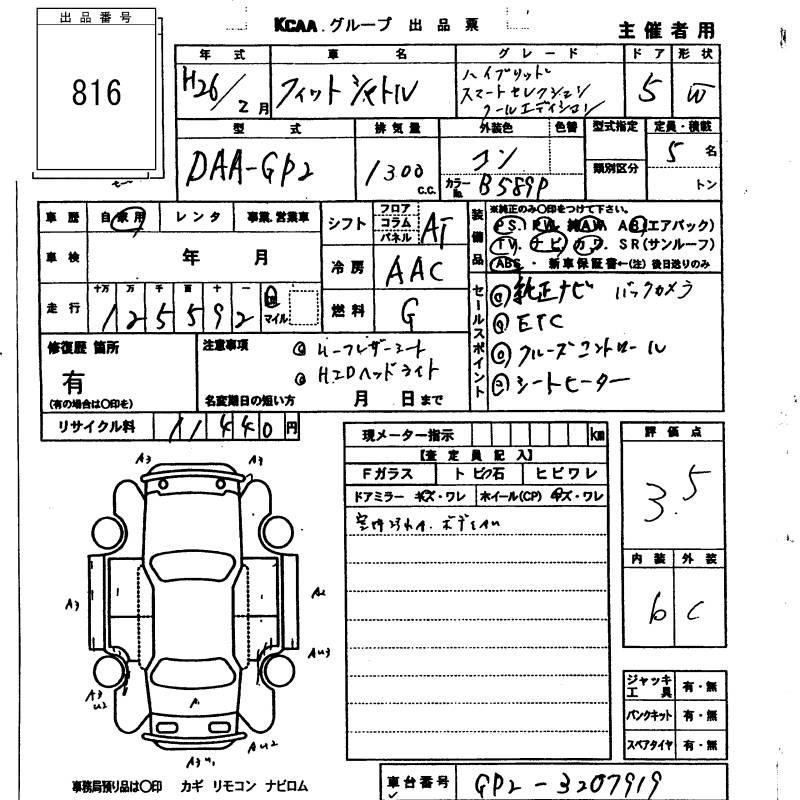 出品番号
816
KCAA.グループ 出品票
主催者用
年式 車名 グレード ドア 形状
H26/2月 フィットシャトル ハイブリッド 5 W
スマートセレクション
クールエディション
型式 排気量 外装色 色替 型式指定 定員・積載
DAA-GP2 1300 c.c. コン 5名
カラーNo. B589P 類別区分 トン
車歴 自家用 レンタ 事業.営業車
車検 年 月
走行 十万 万 千 百 十 一
125592 マイル
シフト フロア コラム パネル AT
冷房 AAC
燃料 G
装備品
※純正のみ〇印をつけて下さい。
PS. PW. 純AW AB(エアバック)
TV. ナビ カワ. SR(サンルーフ)
ABS・新車保証書←(注)後日送りのみ
セールスポイント
純正ナビ バックカメラ
ETC
クルーズコントロール
シートヒーター
修復歴 箇所
有
(有の場合は〇印を)
注意事項
ハーフレザーシート
HIDヘッドライト
名変期日の短い方 月 日まで
リサイクル料 11440円
現メーター指示 km
【査定員記入】
Fガラス トビ石 ヒビワレ
ドアミラー キズ・ワレ ホイール(CP) キズ・ワレ
評価点
3.5
内装 外装
b C
A3 A3
A3 A2
AU3
A3
U2
A
A3U1 AU2
ジャッキ工具 有・無
パンクキット 有・無
スペアタイヤ 有・無
事務局預り品は〇印 カギ リモコン ナビロム
車台番号 GP2-3207919